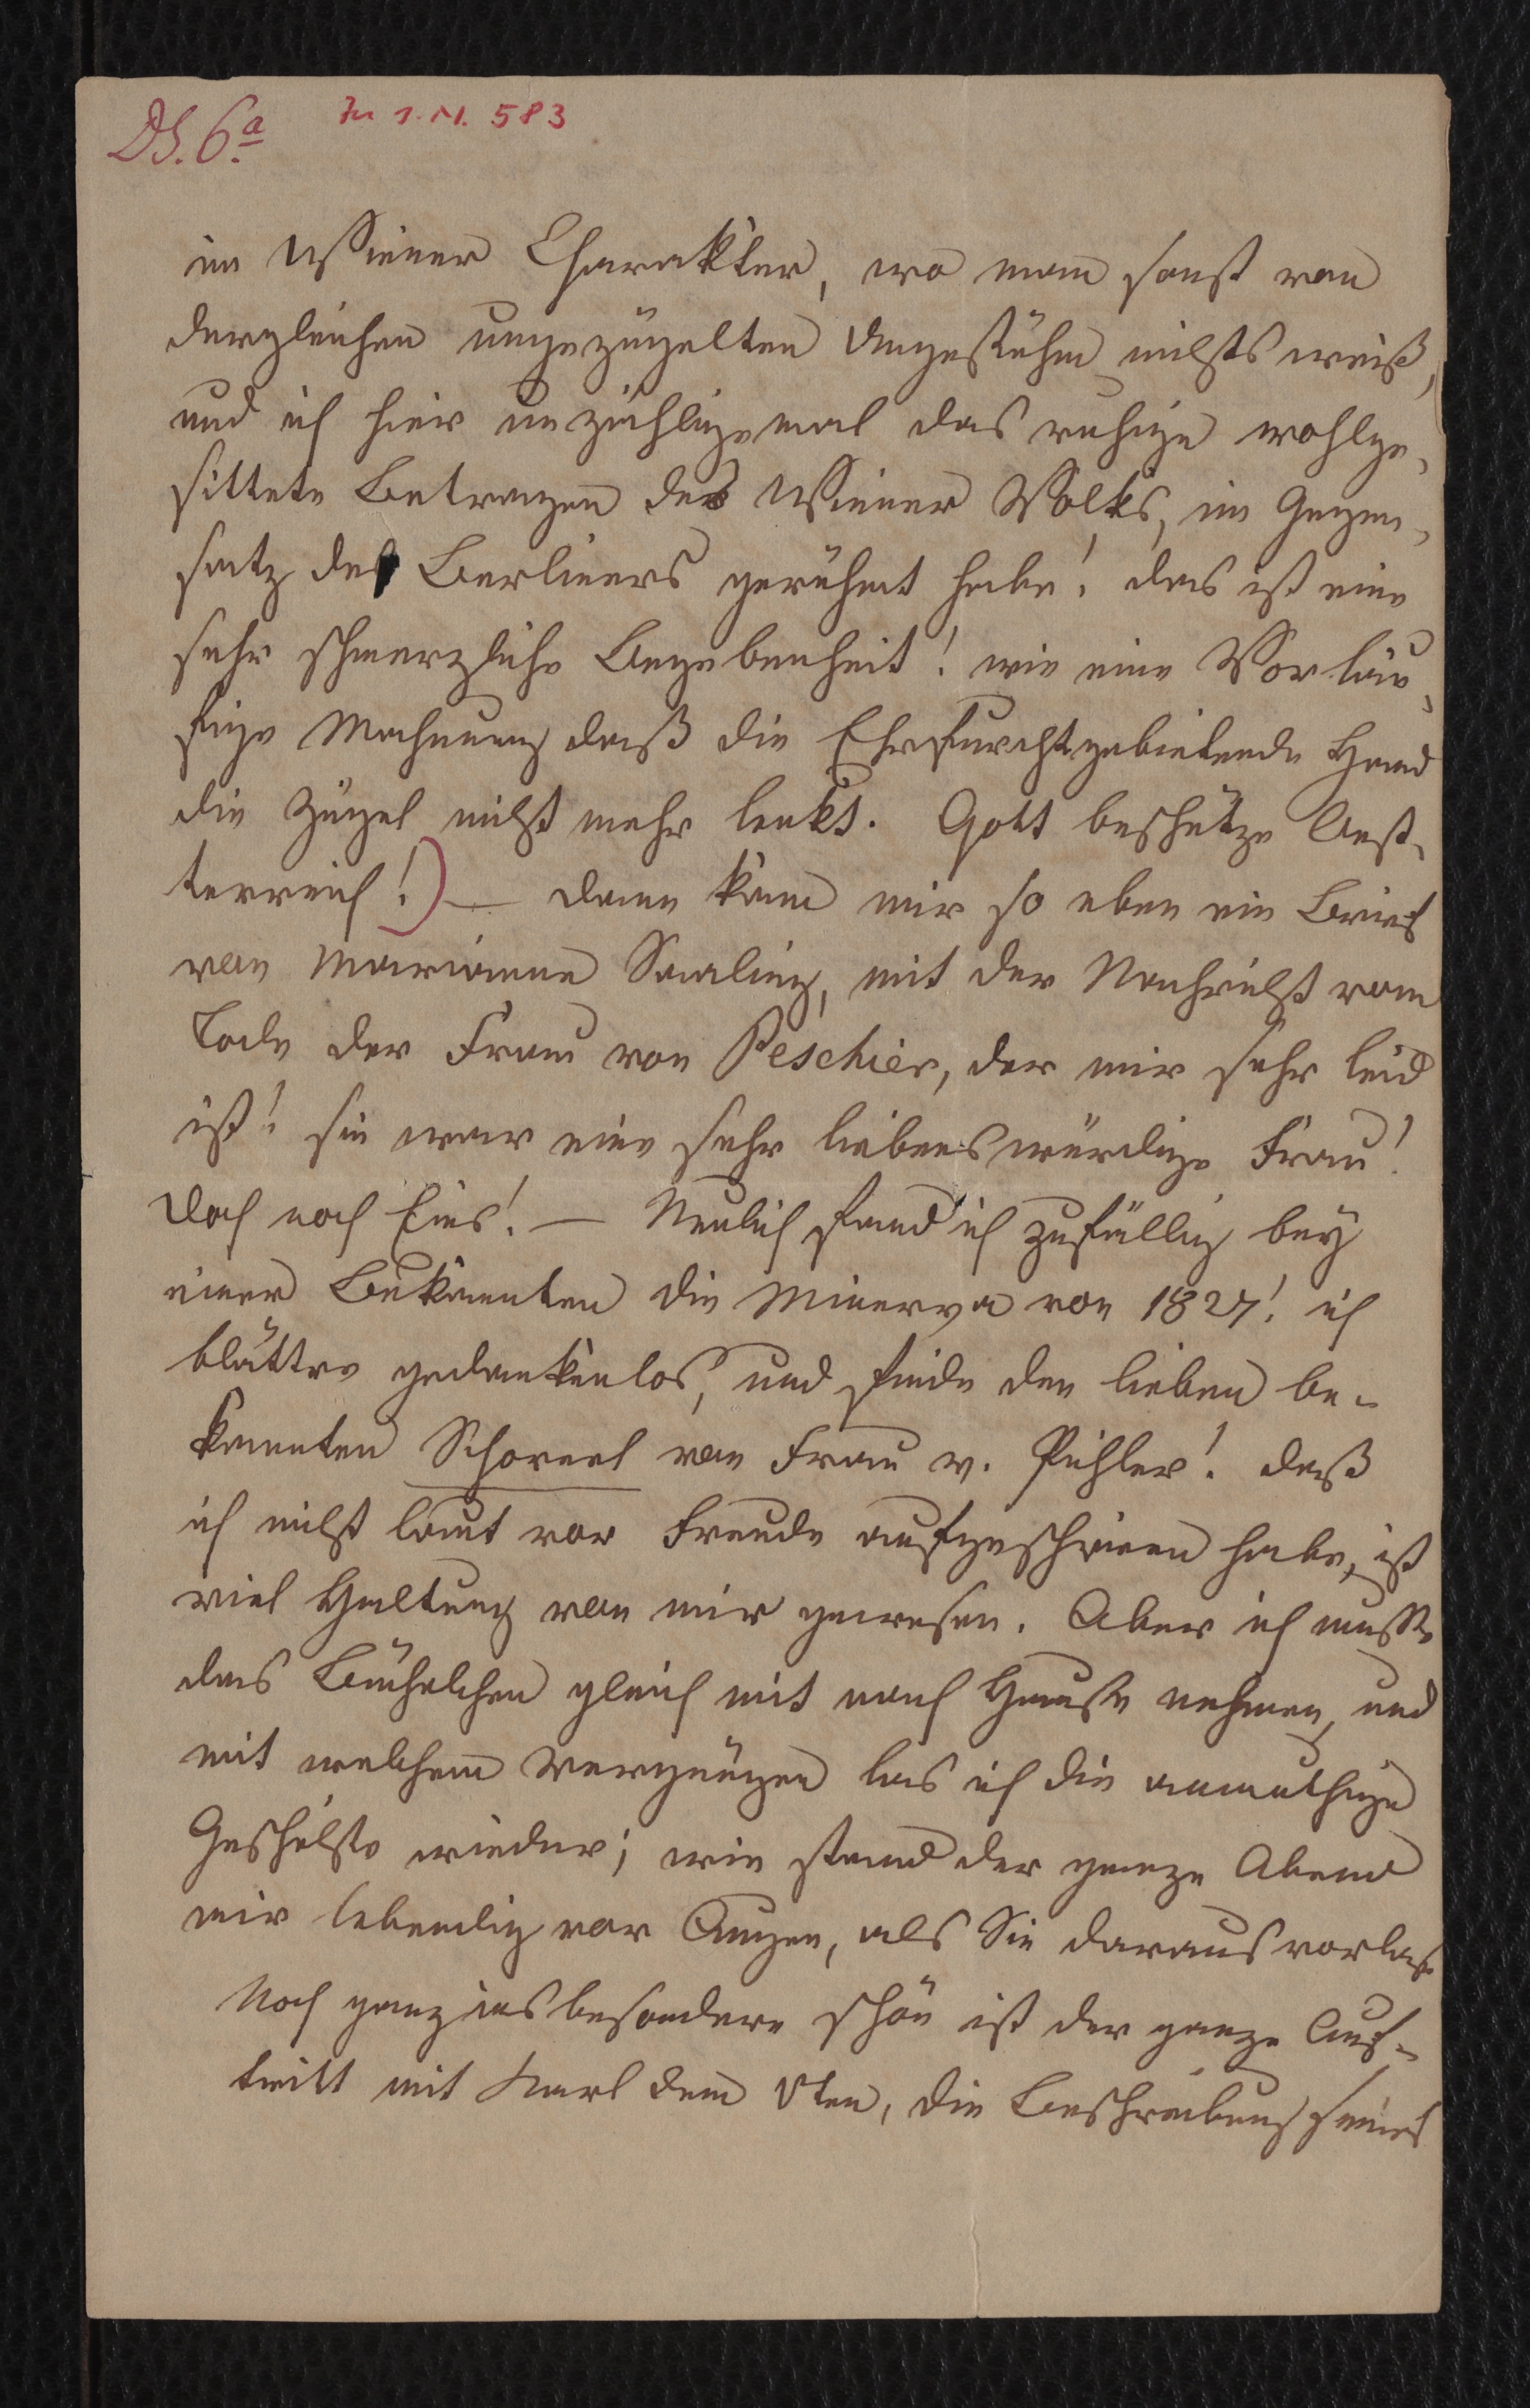 DS. 6a
Zu I.N. 583
im Wiener Charakter, wo man sonst von
dergleichen ungezügelten Ungestühm nichts weiß,
und ich hier unzähligemal das ruhige wohlge-
sittete Betragen des Wiener Volks, im Gegen-
satz des Berliners gerühmt habe! das ist eine
sehr schmerzliche Begebenheit! wie eine Vorläu-
fige Mahnung daß die Ehrfurchtgebietende Hand
die Zügel nicht mehr lenkt. Gott beschütze Oest-
terreich!) — dann kam mir so eben ein Brief
von Marianne Saaling, mit der Nachricht vom
Tode der Frau von Peschier, der mir sehr leid
ist! sie war eine sehr liebenswürdige Frau!
Doch noch Eins! — Neulich fand ich zufällig bey
einer Bekannten die Minerva von 1827! ich
blättre gedankenlos, und finde den lieben be-
kannten Schoreel von Frau v. Pichler! daß
ich nicht laut vor Freude aufgeschrieen habe, ist
viel Haltung von mir gewesen. Aber ich mußte
das Büchelchen gleich mit nach Hause nehmen, und
mit welchem Vergnügen las ich die anmuthige
Geschichte wieder; wie stand der ganze Abend
mir lebendig vor Augen, als Sie daraus vorlas
Noch ganz insbesondere schön ist der ganze Auf-
tritt mit Karl dem Vten, die Beschreibung seines